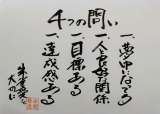 4つの問い
一、夢中になってる
一、人と良好な関係
一、目標ある
一、達成感ある